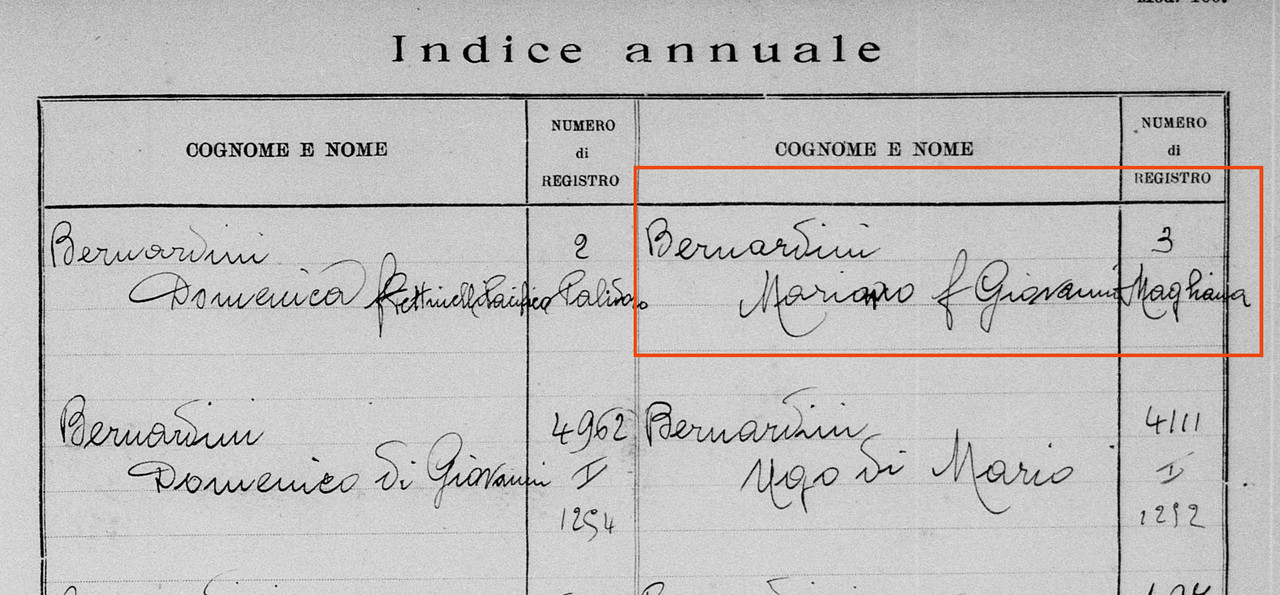 Indice annuale
COGNOME E NOME
NUMERO
di
REGISTRO
COGNOME E NOME
NUMERO
di
REGISTRO
Bernardini
2
Domenica f Pettinelli Pacifico Palidoro
Bernardini
3
Mariano f Giovanni Magliana
Bernardini
4962
Domenico di Giovanni
I
1254
Bernardini
4111
Ugo di Mario
I
1252